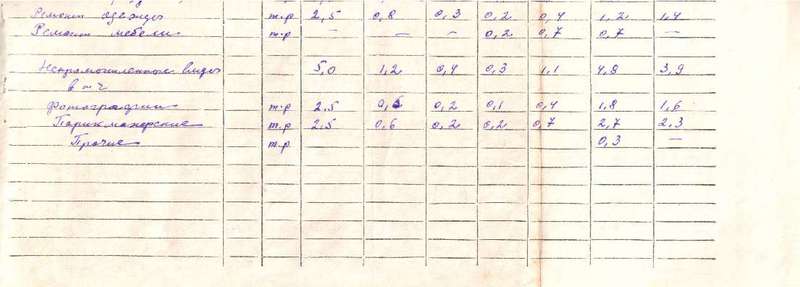 Ремонт одежды т.р 2,5 0,8 0,3 0,2 0,4 1,2 1,4
Ремонт мебели т.р — — — 0,2 0,7 0,7 —
Непромышленные виды 5,0 1,2 0,4 0,3 1,1 4,8 3,9
в т.ч
Фотографии т.р 2,5 0,6 0,2 0,1 0,4 1,8 1,6
Парикмахерские т.р 2,5 0,6 0,2 0,2 0,7 2,7 2,3
Прочие т.р 0,3 —